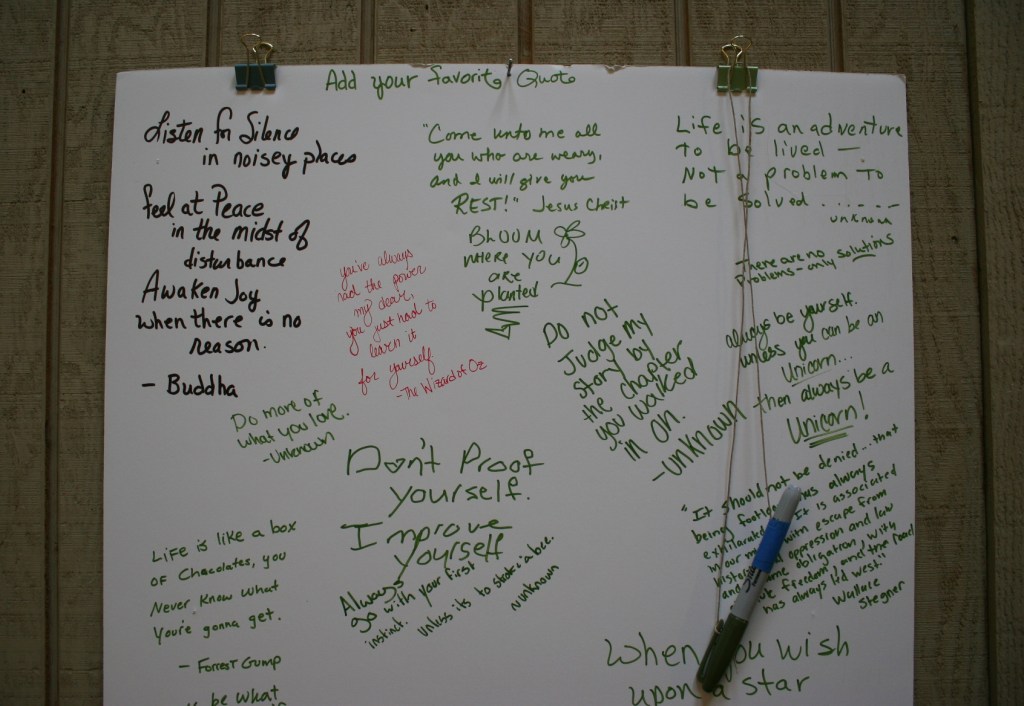 Add your favorite Quote
Listen for Silence
in noisey places
feel at Peace
in the midst of
disturbance
Awaken Joy
when there is no
reason.
- Buddha
"Come unto me all
you who are weary,
and I will give you
REST!" Jesus Christ
Life is an adventure
to be lived —
Not a problem to
be solved .......
unknown
BLOOM
where you
are
planted
There are no
Problems - only solutions
you've always
had the power
my dear,
you just had to
learn it
for yourself.
- The Wizard of Oz
Do not
Judge my
story by
the chapter
you walked
in on.
- unknown
always be yourself.
unless you can be an
Unicorn...
then always be a
Unicorn!
Do more of
what you love.
- Unknown
Don't Proof
yourself.
Improve
yourself
Always
go with your first
instinct. unless its to stroke a bee.
unknown
"It should not be denied... that
being footloose has always
exhilarated It is associated
in our with escape from
oppression and law
and obligation, with
freedom, and the road
has always led west."
Wallace
Stegner
Life is like a box
of Chacolates, you
Never know what
You're gonna get.
- Forrest Gump
When you wish
upon a star
be what